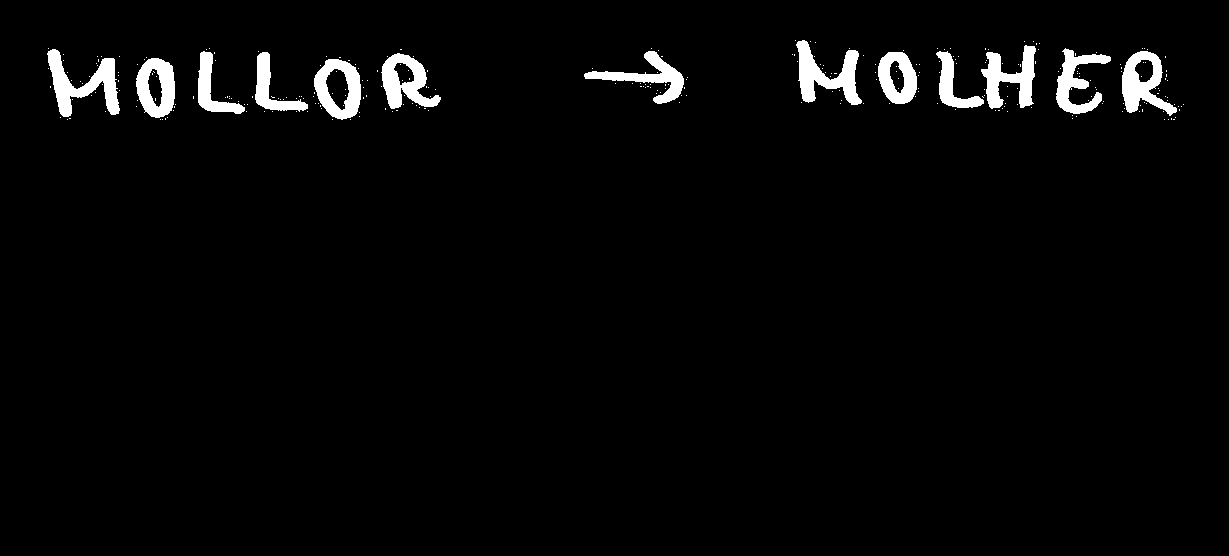 MOLLOR → MOLHER